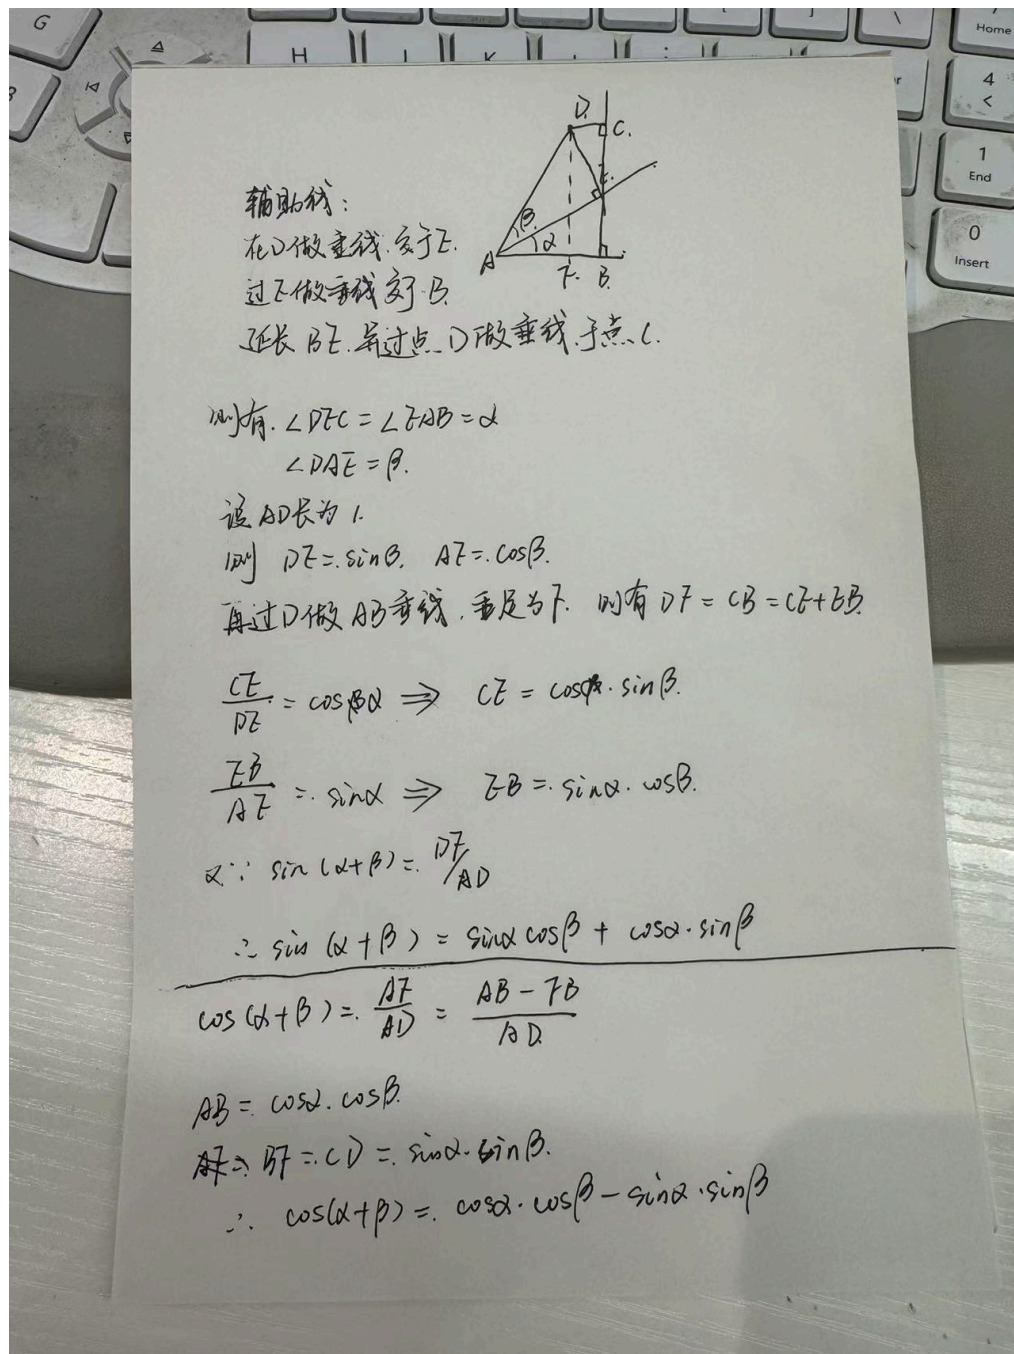 G
H
J
K
Home
4
<
1
End
0
Insert
D
C
E
β
α
A
F
B
辅助线:
在D做垂线.交于E.
过E做垂线交于B.
延长BE.并过点D做垂线.于点C.
则有.∠DEC=∠EAB=α
∠DAE=β.
设AD长为1.
则 DE=sinβ. AE=cosβ.
再过D做AB垂线.垂足为F. 则有DF=CB=CE+EB.
CE/DE=cosα ⇒ CE=cosα·sinβ.
EB/AE=sinα ⇒ EB=sinα·cosβ.
又∵ sin(α+β)=DF/AD
∴ sin(α+β)=sinαcosβ+cosα·sinβ
cos(α+β)=AF/AD=(AB-FB)/AD
AB=cosα.cosβ.
BF=CD=sinα·sinβ.
∴ cos(α+β)=cosα·cosβ-sinα·sinβ